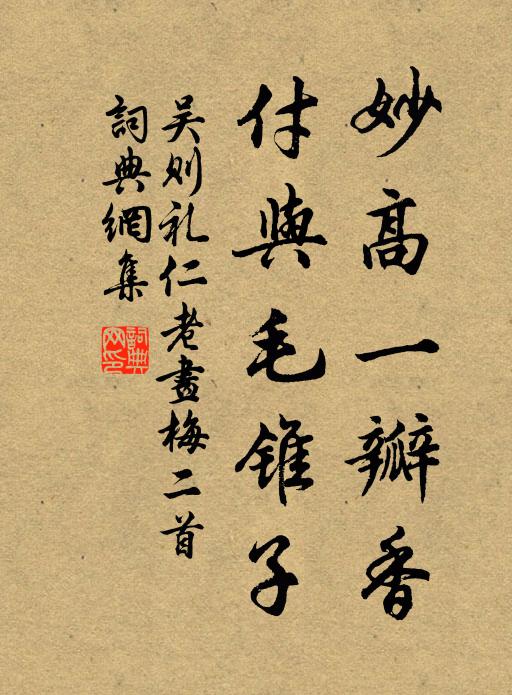 妙高一瓣香
付與毛錐子
吴则礼仁老畫梅二首
詞典網集
詞典网印